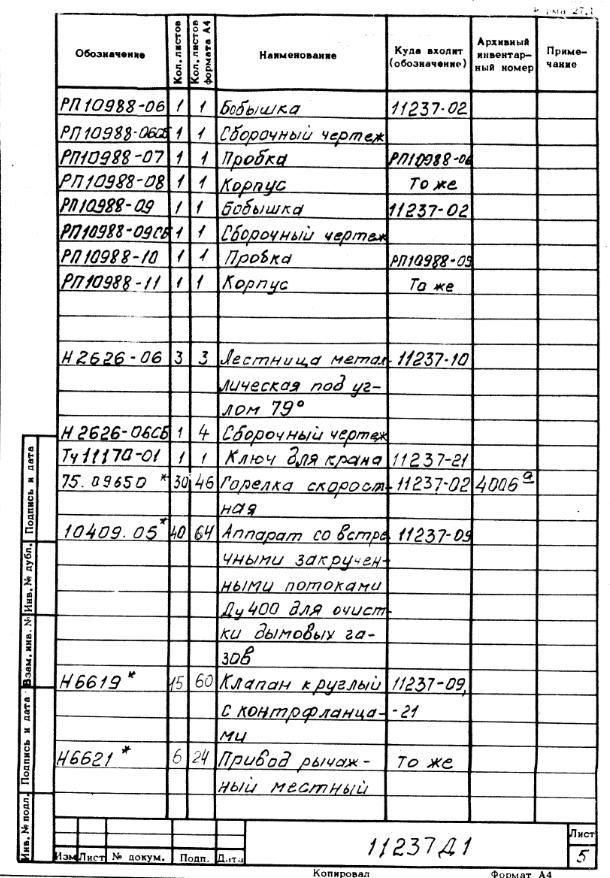 Форма 27.1
Обозначение Кол. листов Кол. листов формата А4 Наименование Куда входит (обозначение) Архивный инвентарный номер Примечание
РП10988-06 1 1 Бобышка 11237-02
РП10988-06СБ 1 1 Сборочный чертеж
РП10988-07 1 1 Пробка РП10988-06
РП10988-08 1 1 Корпус То же
РП10988-09 1 1 Бобышка 11237-02
РП10988-09СБ 1 1 Сборочный чертеж
РП10988-10 1 1 Пробка РП10988-09
РП10988-11 1 1 Корпус То же
Н2626-06 3 3 Лестница метал- 11237-10
лическая под уг-
лом 79°
Н2626-06СБ 1 4 Сборочный чертеж
Тч11170-01 1 1 Ключ для крана 11237-21
75.09650 * 30 46 Горелка скорост- 11237-02 4006а
ная
10409.05 * 40 64 Аппарат со встре- 11237-09
чными закручен-
ными потоками
Ду400 для очист-
ки дымовых га-
зов
Н6619 * 15 60 Клапан круглый 11237-09,
с контрфланца- -21
ми
Н6621 * 6 24 Привод рычаж- То же
ный местный
Инв. № подл. Подпись и дата Взам. инв. № Инв. № дубл. Подпись и дата
Изм Лист № докум. Подп. Дата
11237Д1
Лист
5
Копировал Формат А4